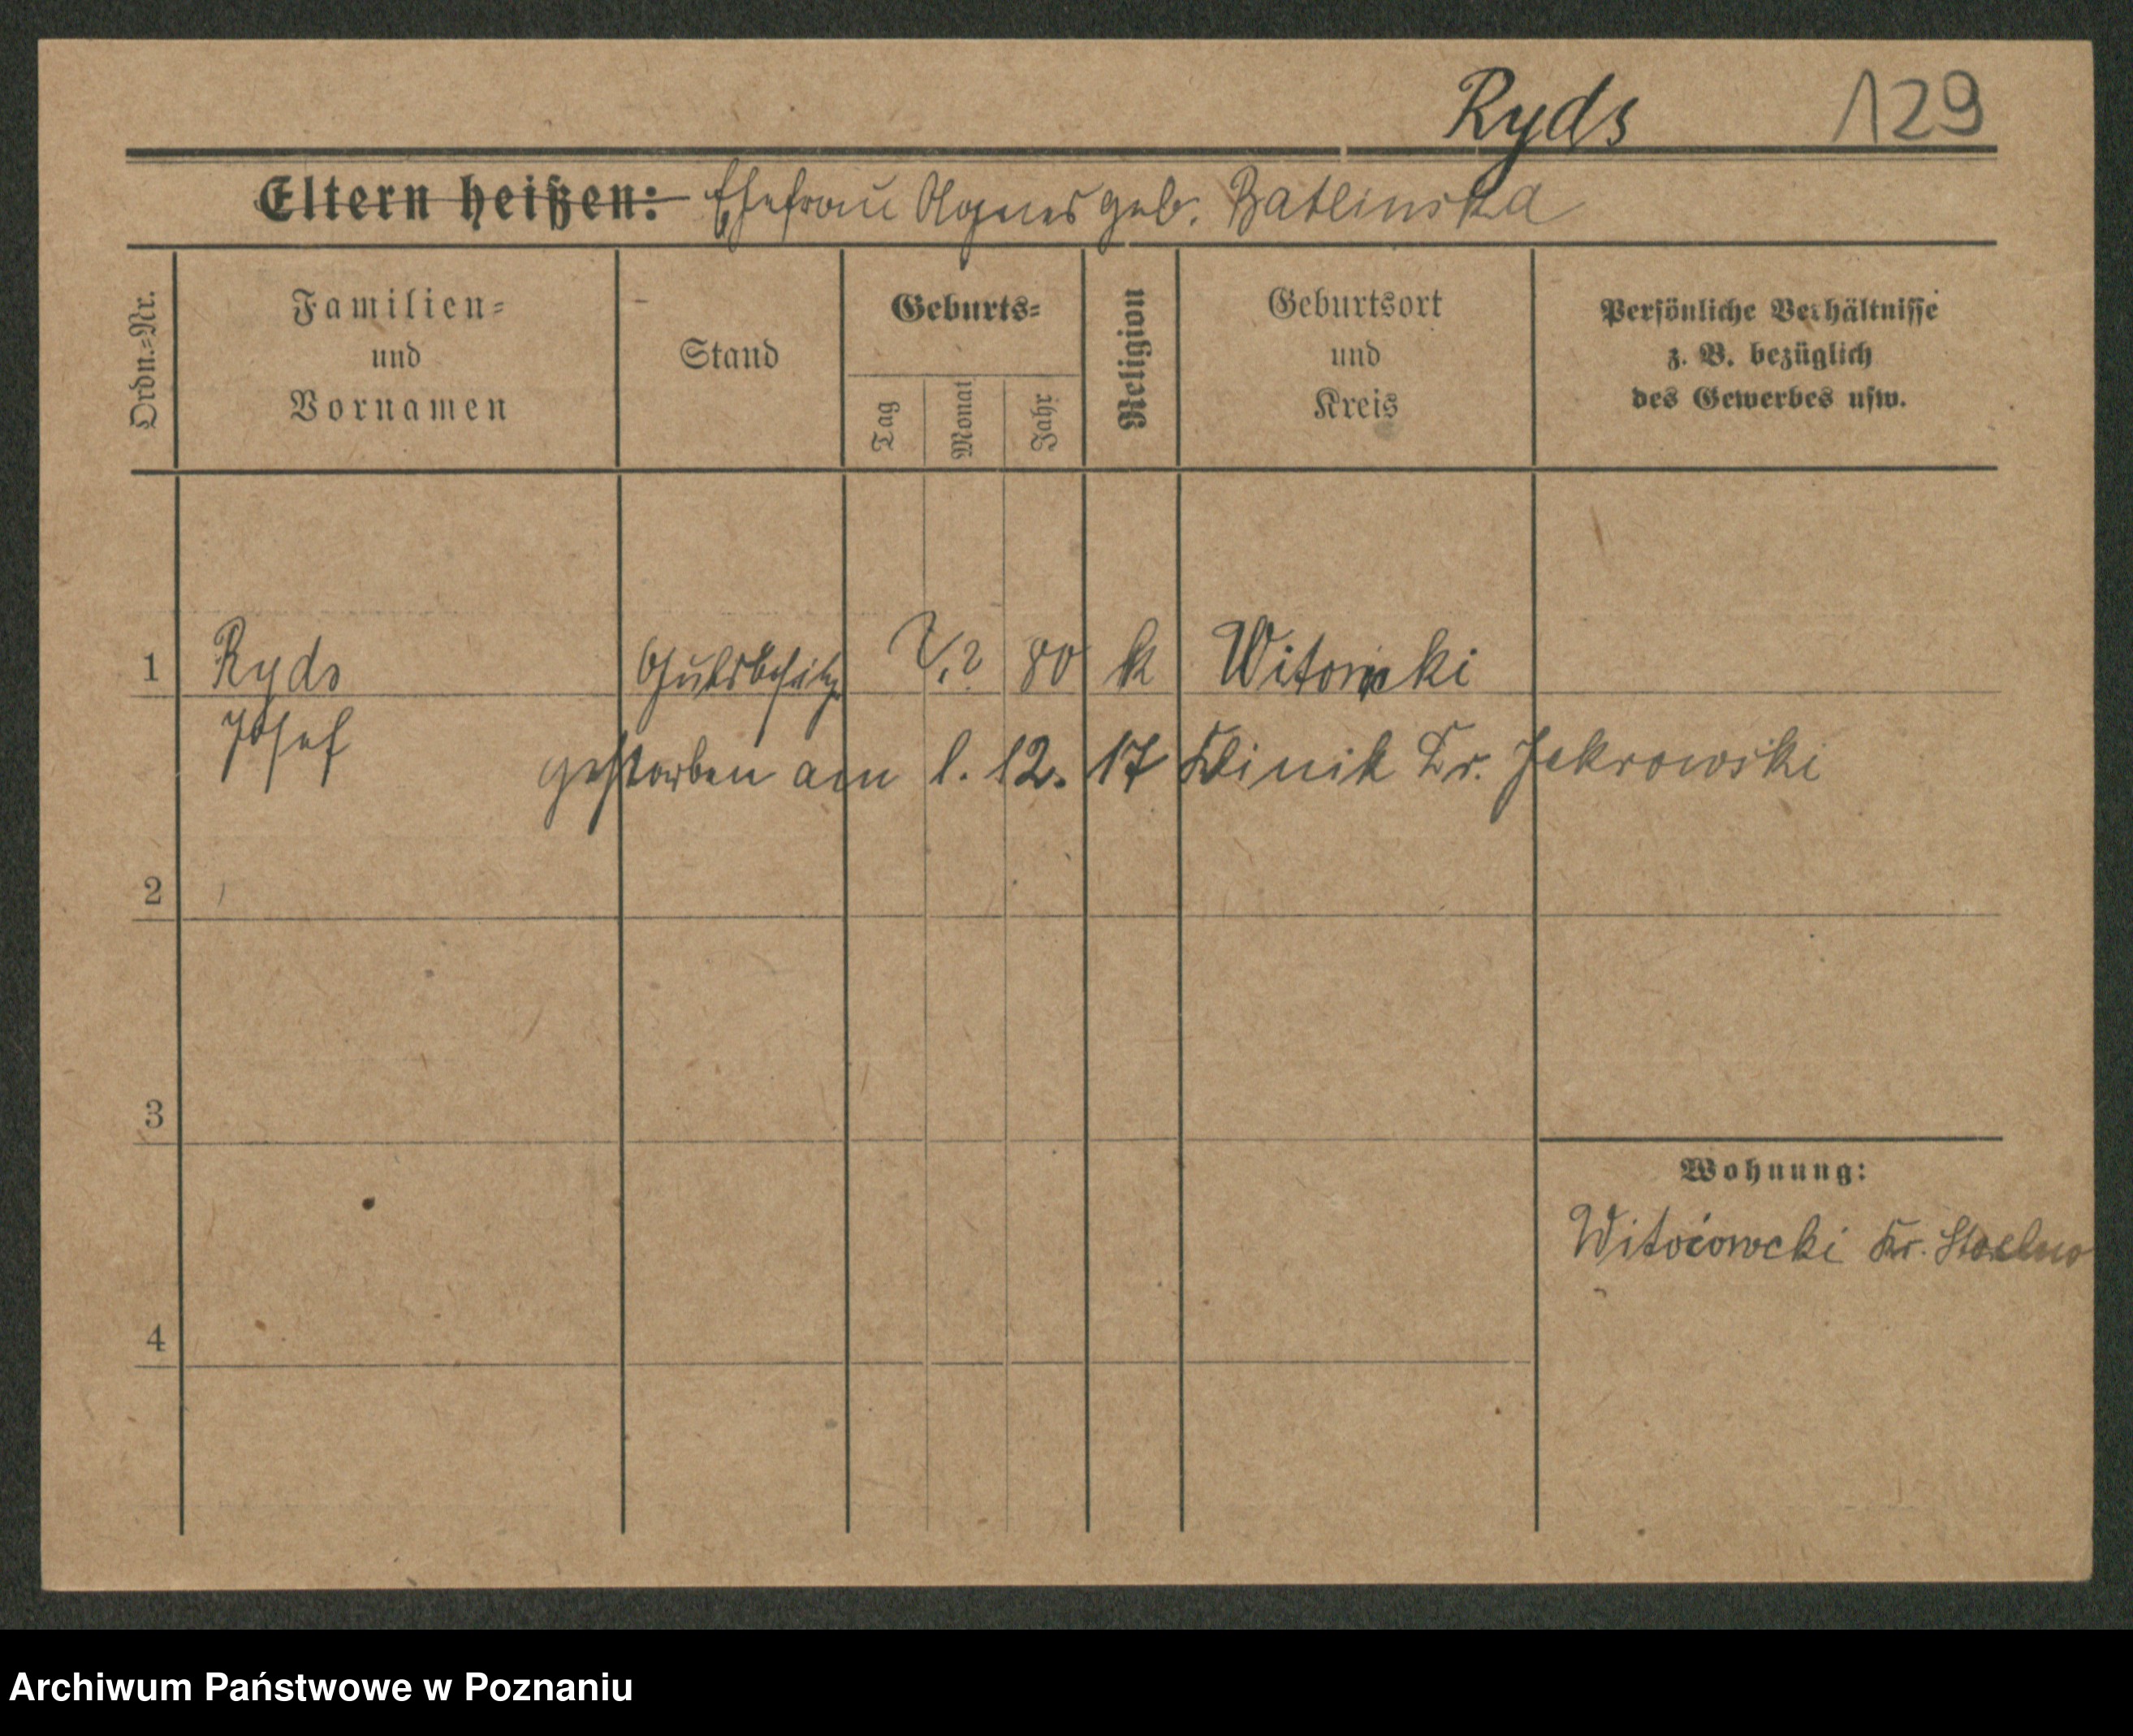 Ryds 129
Eltern heißen: Ehefrau Agnes geb. Batlinska
Ordn.-Nr.
Familien-
und
Vornamen
Stand
Geburts-
Tag
Monat
Jahr
Religion
Geburtsort
und
Kreis
Persönliche Verhältnisse
z. B. bezüglich
des Gewerbes usw.
1 Ryds Gutsbesitz. 80 k
Josef
gestorben am 1. 12. 17 Klinik Dr. Jekrowski
2
3
Wohnung:
Kr. Strelno
4
Archiwum Państwowe w Poznaniu